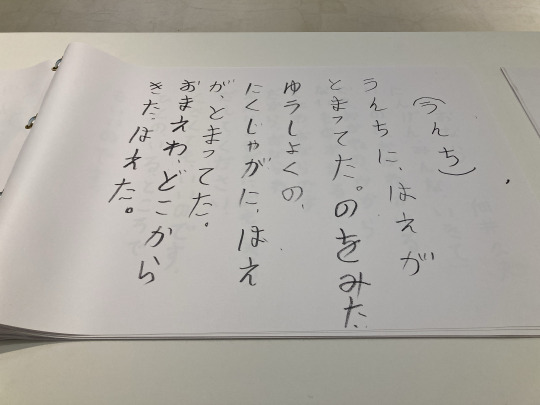 (うんち)
うんちに、はえが
とまってた。のをみた
ゆうしょくの、
にくじゃがに、はえ
が、とまってた。
おまえわ、どこから
きた、はえた。